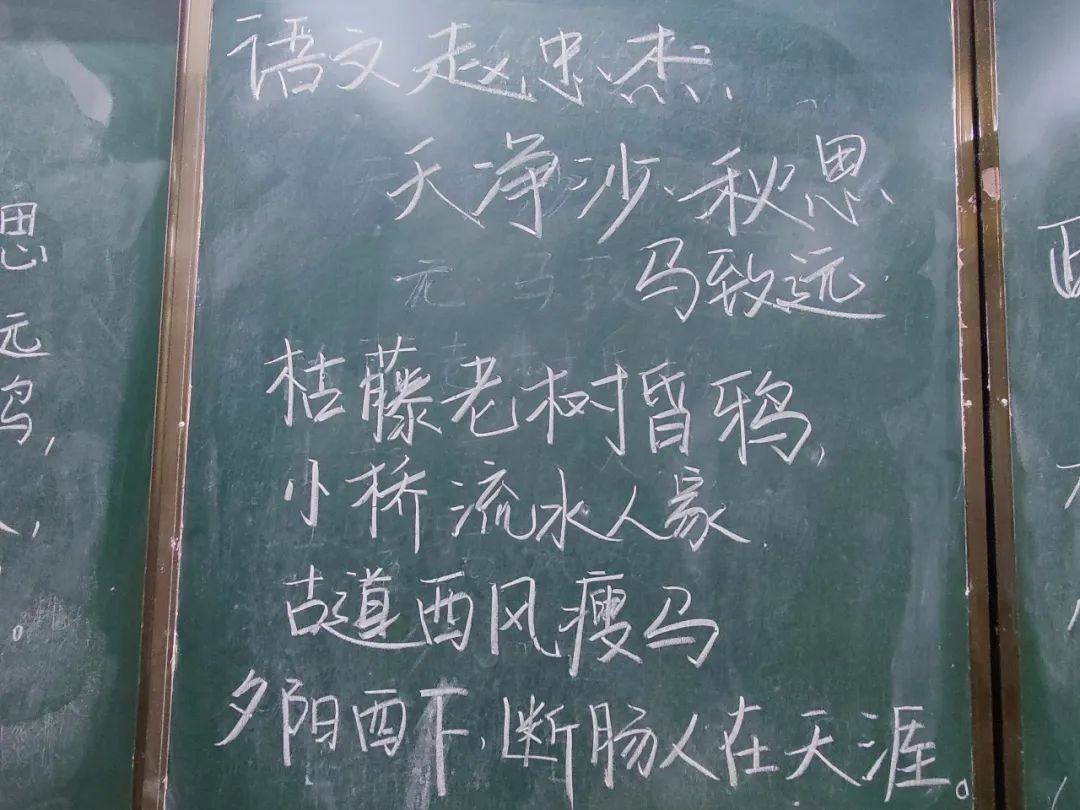 语文赵忠杰
天净沙·秋思
马致远
枯藤老树昏鸦,
小桥流水人家
古道西风瘦马
夕阳西下,断肠人在天涯。
思
远
鸟,